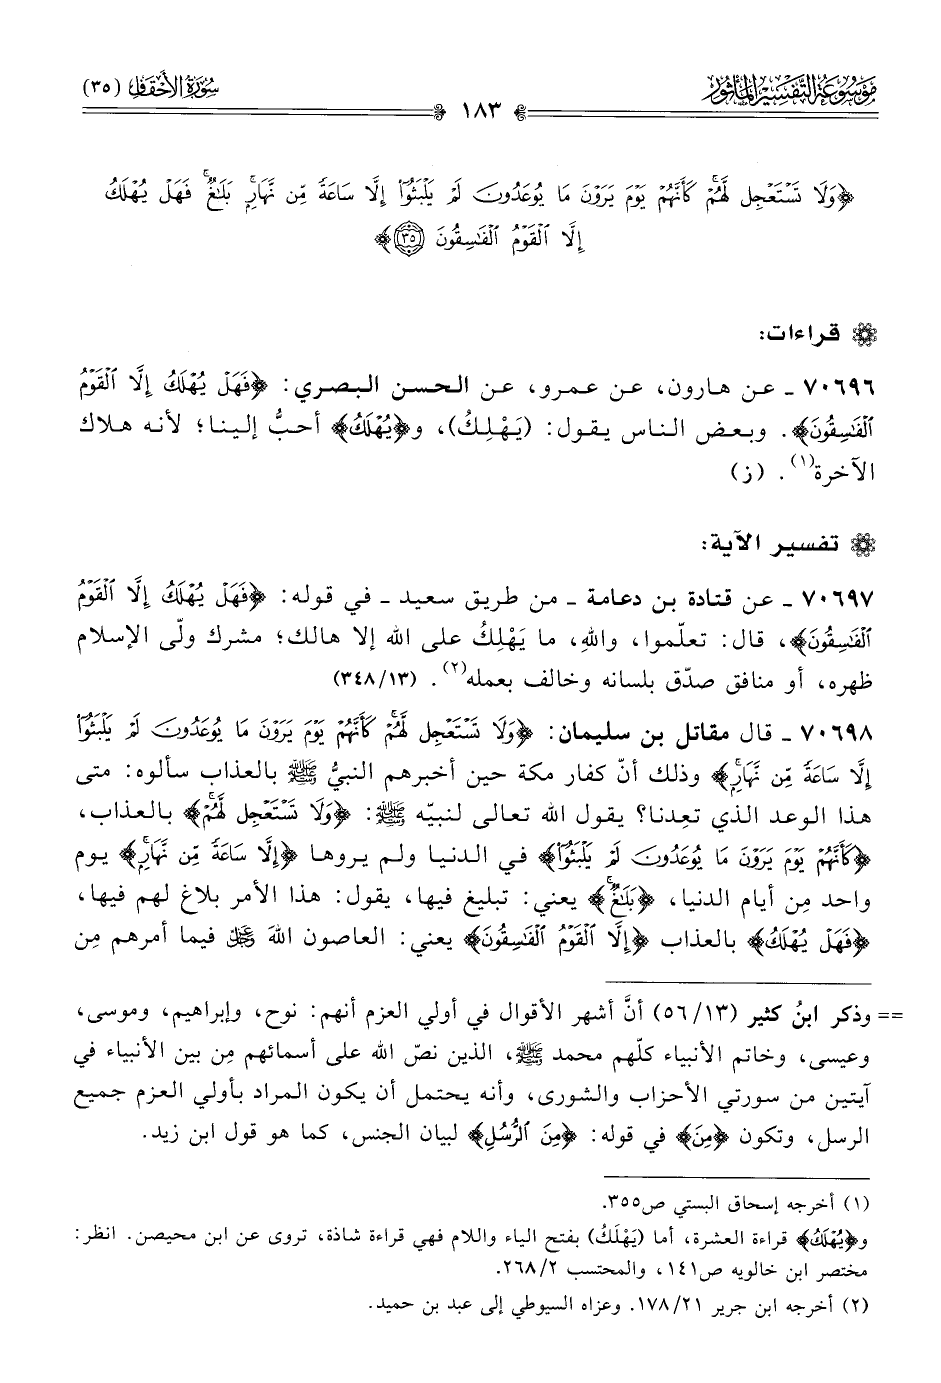 موسوعة التفسير المأثور
سورة الأحقاف (٣٥)
١٨٣
﴿وَلَا تَسْتَعْجِل لَّهُمْ ۚ كَأَنَّهُمْ يَوْمَ يَرَوْنَ مَا يُوعَدُونَ لَمْ يَلْبَثُوٓا۟ إِلَّا سَاعَةً مِّن نَّهَارٍۭ ۚ بَلَـٰغٌ ۚ فَهَلْ يُهْلَكُ
إِلَّا ٱلْقَوْمُ ٱلْفَـٰسِقُونَ ﴿٣٥﴾﴾
قراءات:
٧٠٦٩٦ ـ عن هارون، عن عمرو، عن الحسن البصري: ﴿فَهَلْ يُهْلَكُ إِلَّا ٱلْقَوْمُ
ٱلْفَـٰسِقُونَ﴾. وبعض الناس يقول: (يَهْلِكُ)، و﴿يُهْلَكُ﴾ أحبُّ إلينا؛ لأنه هلاك
الآخرة(١). (ز)
تفسير الآية:
٧٠٦٩٧ ـ عن قتادة بن دعامة ـ من طريق سعيد ـ في قوله: ﴿فَهَلْ يُهْلَكُ إِلَّا ٱلْقَوْمُ
ٱلْفَـٰسِقُونَ﴾، قال: تعلّموا، واللهِ، ما يَهْلِكُ على الله إلا هالك؛ مشرك ولّى الإسلام
ظهره، أو منافق صدّق بلسانه وخالف بعمله(٢). (٣٤٨/١٣)
٧٠٦٩٨ ـ قال مقاتل بن سليمان: ﴿وَلَا تَسْتَعْجِل لَّهُمْ ۚ كَأَنَّهُمْ يَوْمَ يَرَوْنَ مَا يُوعَدُونَ لَمْ يَلْبَثُوٓا۟
إِلَّا سَاعَةً مِّن نَّهَارٍۭ ۚ﴾ وذلك أنّ كفار مكة حين أخبرهم النبيُّ ﷺ بالعذاب سألوه: متى
هذا الوعد الذي تعِدنا؟ يقول الله تعالى لنبيّه ﷺ: ﴿وَلَا تَسْتَعْجِل لَّهُمْ ۚ﴾ بالعذاب،
﴿كَأَنَّهُمْ يَوْمَ يَرَوْنَ مَا يُوعَدُونَ لَمْ يَلْبَثُوٓا۟﴾ في الدنيا ولم يروها ﴿إِلَّا سَاعَةً مِّن نَّهَارٍۭ ۚ﴾ يوم
واحد مِن أيام الدنيا، ﴿بَلَـٰغٌ ۚ﴾ يعني: تبليغ فيها، يقول: هذا الأمر بلاغ لهم فيها،
﴿فَهَلْ يُهْلَكُ﴾ بالعذاب ﴿إِلَّا ٱلْقَوْمُ ٱلْفَـٰسِقُونَ﴾ يعني: العاصون اللهَ ﷻ فيما أمرهم مِن
== وذكر ابنُ كثير (٥٦/١٣) أنَّ أشهر الأقوال في أولي العزم أنهم: نوح، وإبراهيم، وموسى،
وعيسى، وخاتم الأنبياء كلّهم محمد ﷺ، الذين نصّ الله على أسمائهم مِن بين الأنبياء في
آيتين من سورتي الأحزاب والشورى، وأنه يحتمل أن يكون المراد بأولي العزم جميع
الرسل، وتكون ﴿مِنَ﴾ في قوله: ﴿مِنَ ٱلرُّسُلِ﴾ لبيان الجنس، كما هو قول ابن زيد.
(١) أخرجه إسحاق البستي ص٣٥٥.
و﴿يُهْلَكُ﴾ قراءة العشرة، أما (يَهْلَكُ) بفتح الياء واللام فهي قراءة شاذة، تروى عن ابن محيصن. انظر:
مختصر ابن خالويه ص١٤١، والمحتسب ٢٦٨/٢.
(٢) أخرجه ابن جرير ١٧٨/٢١. وعزاه السيوطي إلى عبد بن حميد.